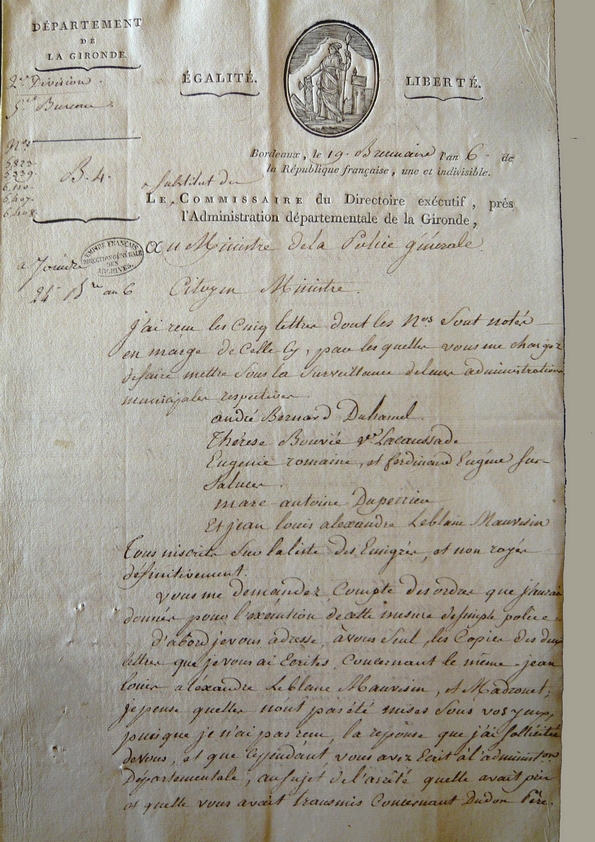 DÉPARTEMENT
DE
LA GIRONDE.
2.e Division.
5.me Bureau
Nos
5,823
5,929
6,110
6,407
6,408
B. 4.
ÉGALITÉ.
LIBERTÉ.
Bordeaux, le 19. Brumaire l'an 6. de
la République française, une et indivisible.
substitut du
LE COMMISSAIRE du Directoire exécutif, près
l'Administration départementale de la Gironde,
EMPIRE FRANÇAIS
DIRECTION GÉNÉRALE
DES
ARCHIVES
a Joindre
26 Bre an 6
Au Ministre de la Police générale
Citoyen Ministre.
J'ai reçu les Cinq lettres dont les Nos Sont notés
en marge de Celle Cy, par les quelles vous me chargez
de faire mettre Sous la Surveillance de leurs administrations
municipales respectives
andré Bernard Duhamel
Thérèse Bouvié ve Lacaussade
Eugenie romaine, et ferdinand Eugéne fur
Saluces.
marc antoine Duperrieu
Et jean louis alexandre Leblanc Mauvesin
Tous inscrits Sur la liste des Emigrés, et non rayés
définitivement.
vous me demandez Compte des ordres que j'aurai
donnés pour l'exécution de cette mesure de simple police.
d'abord je vous adresse, a vous Seul, les Copies des deux
lettres que je vous ai Ecrites, Concernant le même jean
louis aléxandre Leblanc Mauvesin, et Madronet;
je pense quelles n'ont pas été mises Sous vos yeux,
puis que je n'ai pas reçu, la réponse que j'ai Sollicitée
de vous, et que Cependant, vous avez Ecrit à l'administon
Départementale, au sujet de l'arrêté quelle avait pris
et quelle vous avait transmis Concernant Dudon Père.